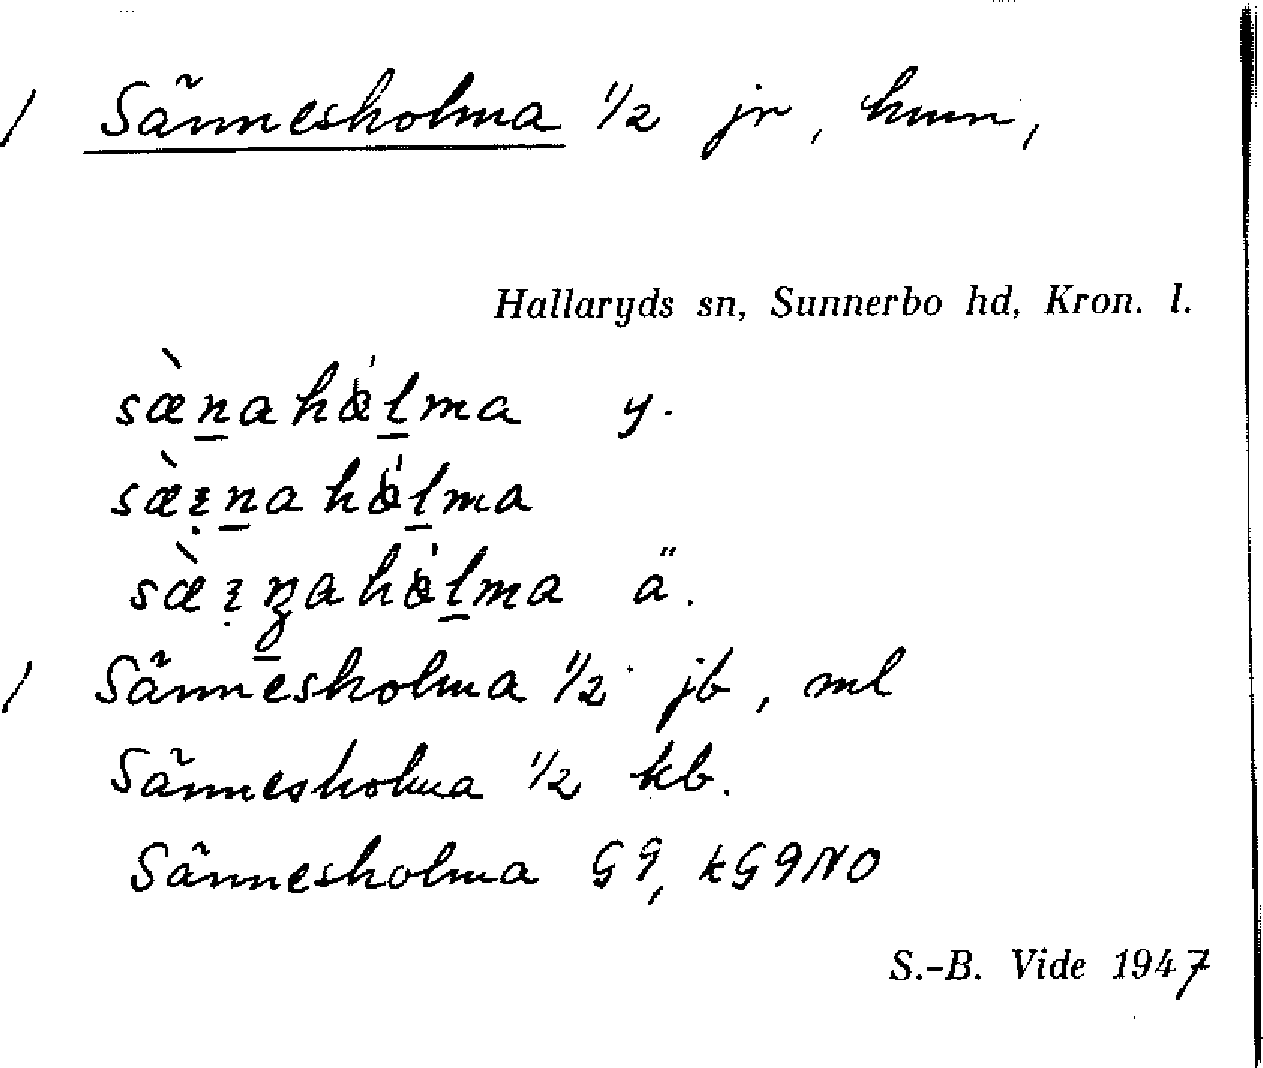 / Sännesholma 1/2 jr, hmn,
Hallaryds sn, Sunnerbo hd, Kron. l.
sæ̀n̲ahål̲ma y.
sæ̀ı̣n̲ahål̲ma
ä.
/ Sännesholma 1/2 jb, ml
Sännesholma 1/2 kb.
Sännesholma G9, kG9NO
S.-B. Vide 1947